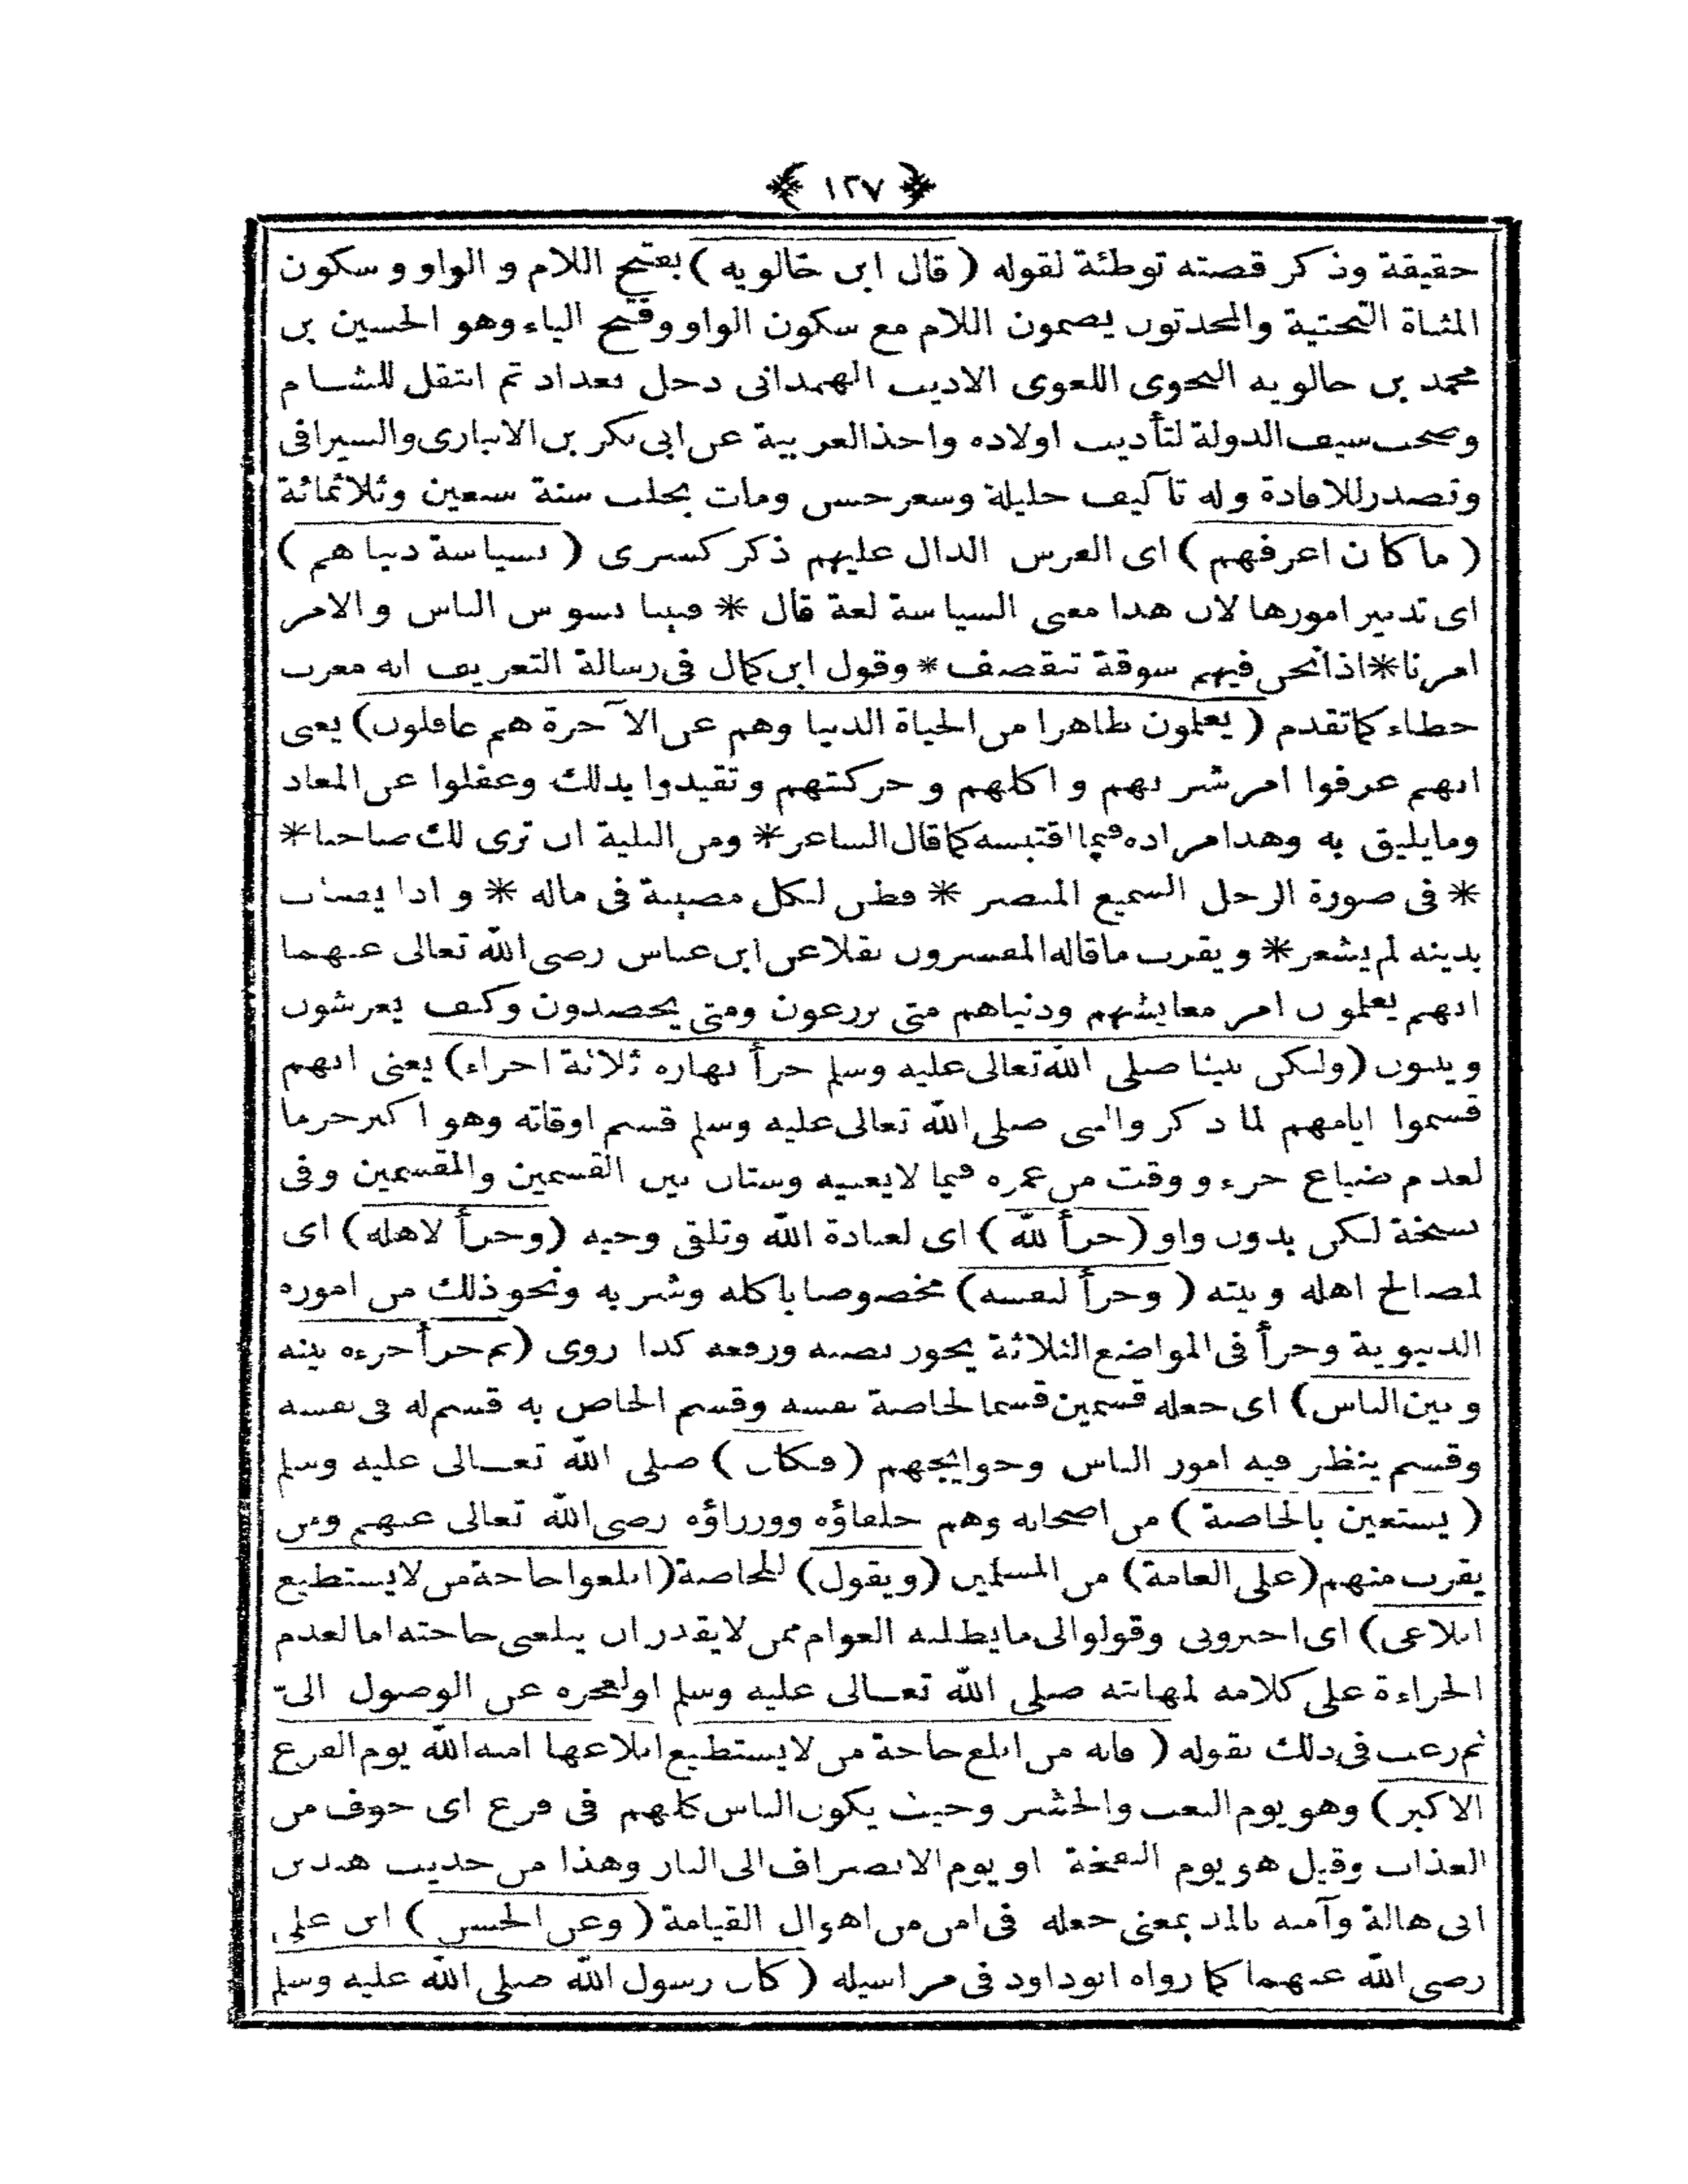 ﴿ ١٢٧ ﴾
حقيقة وذكر قصته توطئة لقوله ( قال ابن خالويه ) بفتح اللام و الواو و سكون
المثناة التحتية والمحدثون يضمون اللام مع سكون الواو وفتح الياء وهو الحسين بن
محمد بن خالويه النحوى اللغوى الاديب الهمدانى دخل بغداد ثم انتقل للشام
وصحب سيف الدولة لتأديب اولاده واخذ العربية عن ابى بكر بن الانبارى والسيرافى
وتصدر للافادة وله تآكيف جليلة وشعر حسن ومات بحلب سنة سبعين وثلاثمائة
( ماكان اعرفهم ) اى الفرس الدال عليهم ذكر كسرى ( بسياسة دنياهم )
اى تدبير امورها لان هذا معنى السياسة لغة قال * فبينا نسوس الناس والامر
امرنا * اذا نحن فيهم سوقة نتقصف * وقول ابن كمال فى رسالة التعريب انه معرب
خطاء كما تقدم ( يعلمون ظاهرا من الحياة الدنيا وهم عن الآخرة هم غافلون ) يعنى
انهم عرفوا امر شربهم و اكلهم و حركتهم وتقيدوا بذلك وغفلوا عن المعاد
ومايليق به وهذا مراده فيما اقتبسه كما قال الشاعر * ومن البلية ان ترى لك صاحبا *
* فى صورة الرجل السميع المبصر * فطن لكل مصيبة فى ماله * و اذا يصاب
بدينه لم يشعر * ويقرب ماقاله المفسرون نقلا عن ابن عباس رضى الله تعالى عنهما
انهم يعلمون امر معايشهم ودنياهم متى يزرعون ومتى يحصدون وكيف يغرشون
ويبنون ( ولكن نبينا صلى الله تعالى عليه وسلم جزأ نهاره ثلاثة اجزاء ) يعنى انهم
قسموا ايامهم لما ذكر والنبى صلى الله تعالى عليه وسلم قسم اوقاته وهو اكبر حزما
لعدم ضياع جزء و وقت من عمره فيما لايعنيه وشتان بين القسمين والمقسمين وفى
نسخة لكن بدون واو ( جزأ لله ) اى لعبادة الله وتلقى وحيه ( وجزأ لاهله ) اى
لمصالح اهله وبيته ( وجزأ لنفسه ) مخصوصا باكله وشربه ونحو ذلك من اموره
الدنيوية وجزأ فى المواضع الثلاثة يجوز نصبه ورفعه كذا روى ( ثم جزأ جزءه بينه
وبين الناس ) اى جعله قسمين قسما لخاصة نفسه وقسم الخاص به قسم له فى نفسه
وقسم ينظر فيه امور الناس وحوايجهم ( فكان ) صلى الله تعالى عليه وسلم
( يستعين بالخاصة ) من اصحابه وهم خلفاؤه ووزراؤه رضى الله تعالى عنهم ومن
يقرب منهم ( على العامة ) من المسلمين ( ويقول ) للخاصة ( ابلغوا حاجة من لايستطيع
ابلاغى ) اى اخبرونى وقولوا لى مايطلبه العوام ممن لايقدر ان يبلغنى حاجته اما لعدم
الجراءة على كلامه لمهابته صلى الله تعالى عليه وسلم او لعجزه عن الوصول الىّ
ثم رغب فى ذلك بقوله ( فانه من ابلغ حاجة من لايستطيع ابلاغها امنه الله يوم الفزع
الاكبر ) وهو يوم البعث والحشر وحيث يكون الناس كلهم فى فزع اى خوف من
العذاب وقيل هو يوم النفخة او يوم الانصراف الى النار وهذا من حديث هند بن
ابى هالة وآمنه بالمد بمعنى جعله فى امن من اهوال القيامة ( وعن الحسن ) ابن على
رضى الله عنهما كما رواه ابو داود فى مراسيله ( كان رسول الله صلى الله عليه وسلم